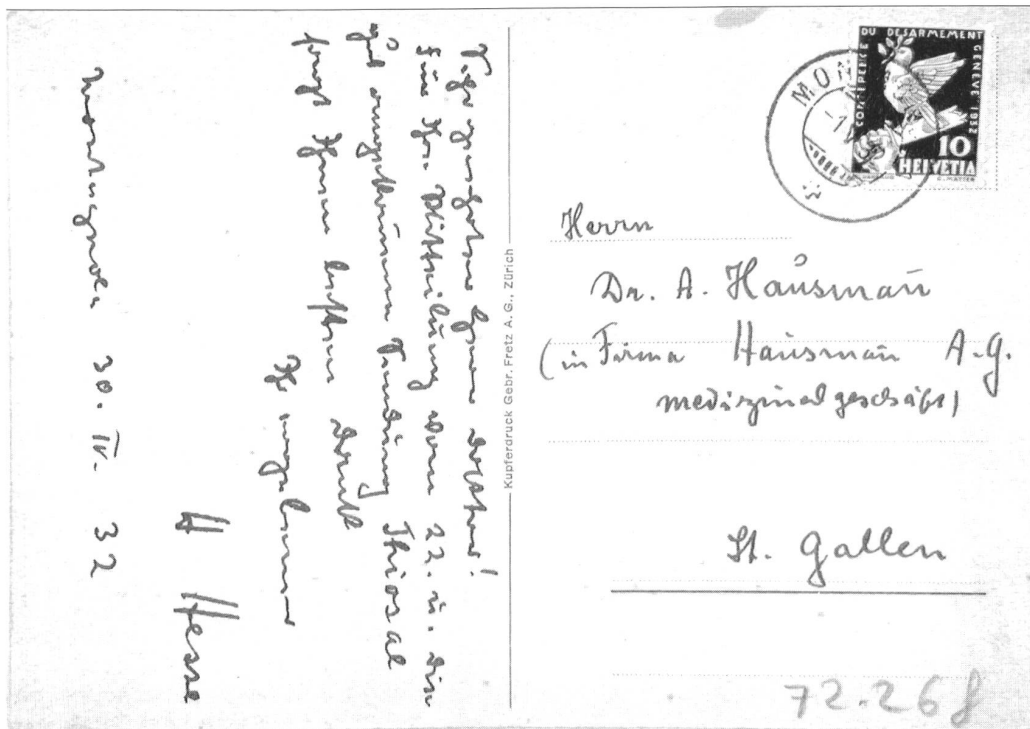 Sehr geehrter Herr Doktor!
Für Ihre Mitteilung vom 22. u. die
gut angekommene Sendung Thiosal
sagt Ihnen besten Dank
Ihr ergebener
H Hesse
Montagnola 30. IV. 32
Kupferdruck Gebr. Fretz A. G., Zürich
CONFERENCE DU DESARMEMENT GENEVE 1932
10
HELVETIA
MON
Herrn
Dr. A. Hausmañ
(in Firma Hausmañ A.-G.
Medizinalgeschäft)
St. Gallen
72.268